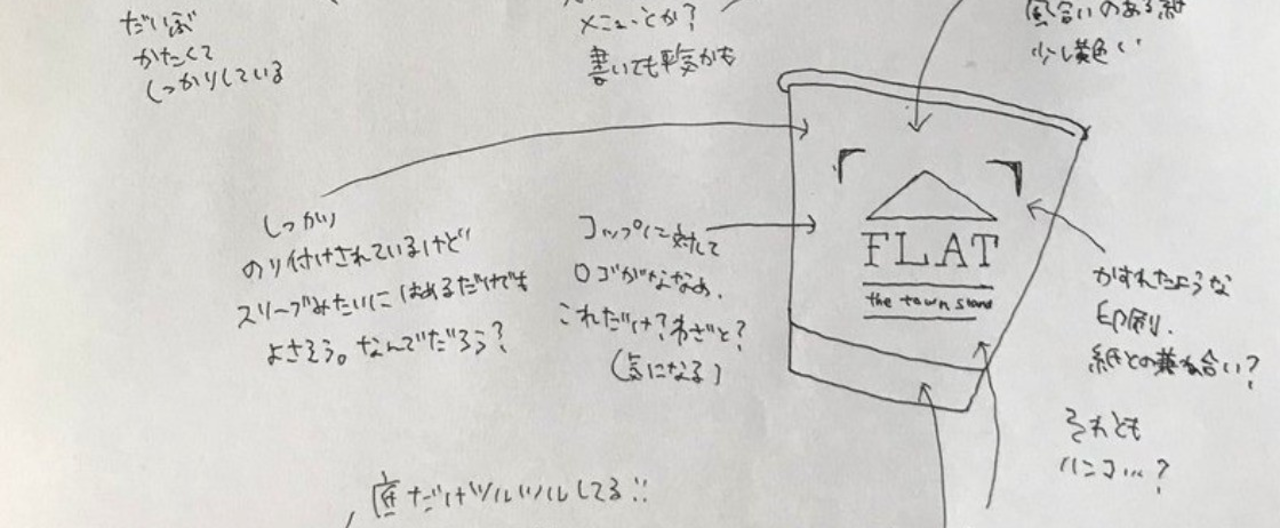 だいぶ
かたくて
しっかりしている
メニューとか?
書いても平気かも
風合いのある紙
少し黄色い
しっかり
のり付けされているけど
スリーブみたいにはめるだけでも
よさそう。なんでだろう?
コップに対して
ロゴがななめ。
これだけ?わざと?
(気になる)
FLAT
the town stand
かすれたような
印刷。
紙との兼ね合い?
それとも
ハンコ…?
底だけツルツルしてる!!